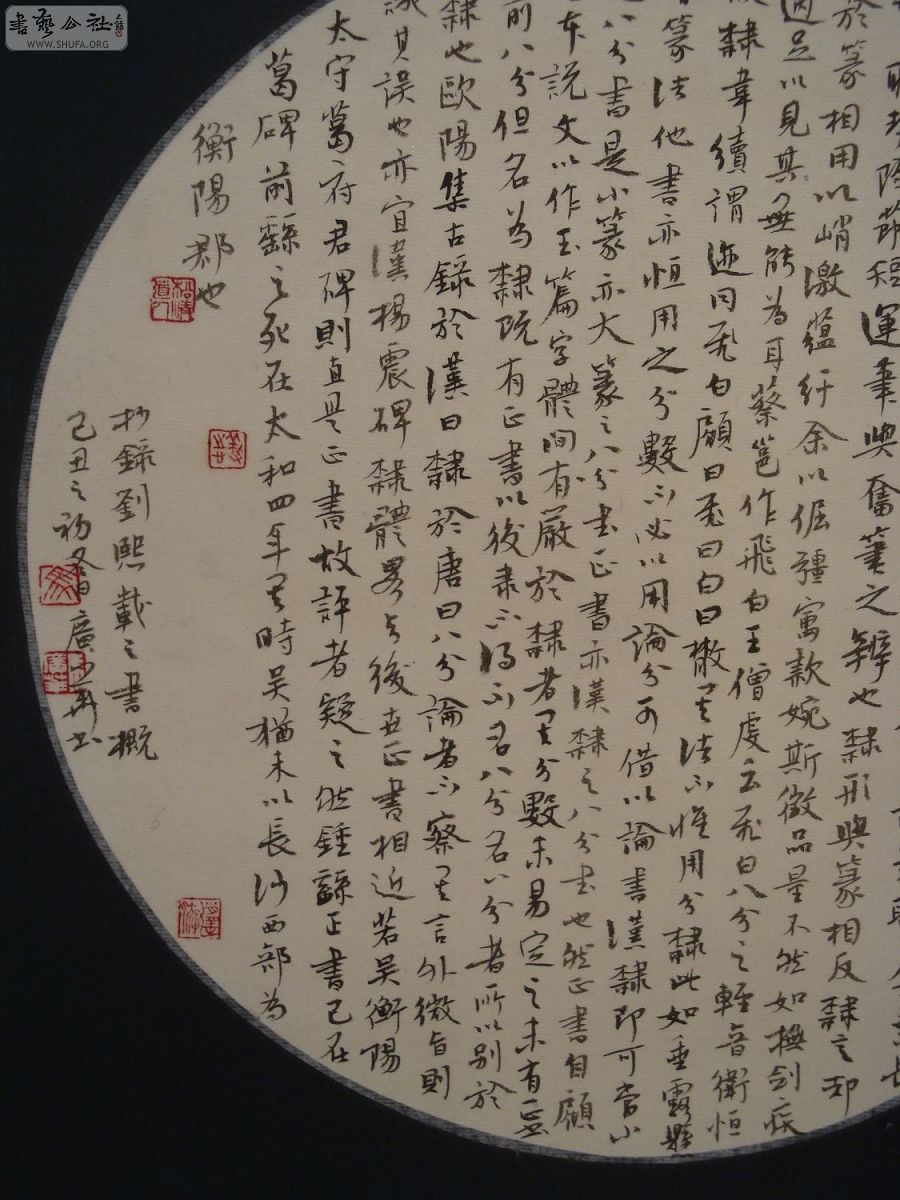 書藝公社
WWW.SHUFA.ORG
取势險節短運筆與奮筆之辨也隸形與篆相反隸意却
於篆相用以峭激蘊紆余以倔彊寓款婉斯徵品量不然如撫劍疾
適足以見其無能為耳蔡邕作飛白王僧虔云飛白八分之輕者衛恒
散隸韋續謂迹同飛白顧曰飛曰白曰散其法不惟用分隸此如垂露懸
篆法他書亦恒用之分數不必以用論分可借以論書漢隸即可當小
之八分書是小篆亦大篆之八分書正書亦漢隸之八分書也然正書自顧
本說文以作玉篇字體間有嚴於隸者其分數未易定之未有正
前八分但名為隸既有正書以後隸不得不名八分名八分者所以別於
隸也歐陽集古錄於漢曰隸於唐曰八分論者不察其言外微旨則
譏其誤也亦宜漢楊震碑隸體畧與後世正書相近若吳衡陽
太守葛府君碑則直是正書故評者疑之然鍾繇正書已在
葛碑前繇之死在太和四年其時吳猶未以長沙西部為
衡陽郡也
抄錄劉熙載之書概
己丑之初冬日廣